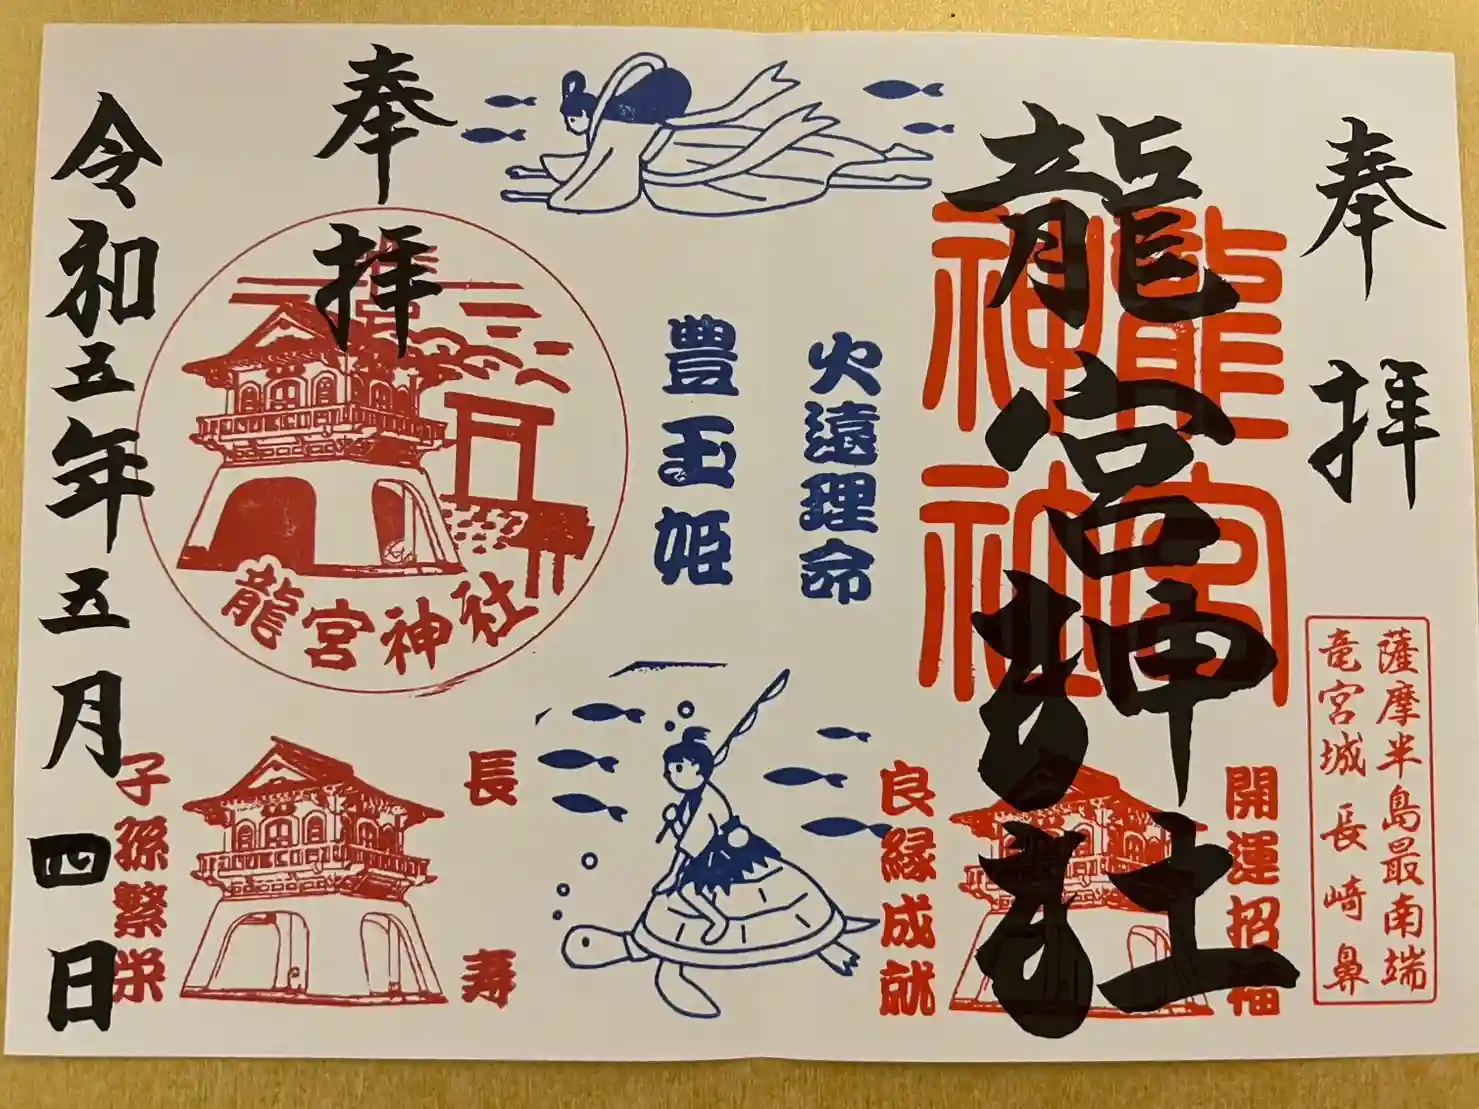 奉拝
龍宮神社
龍宮
神社
薩摩半島最南端
竜宮城長崎鼻
開運招福
良縁成就
火遠理命
豊玉姫
奉拝
龍宮神社
長寿
子孫繁栄
令和五年五月四日